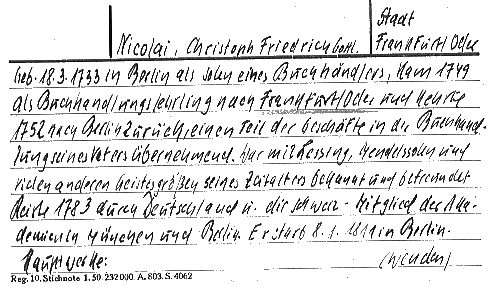 Stadt
Nicolai, Christoph Friedrich Gottl. Frankfurt/Oder
Geb. 18.3.1733 in Berlin als Sohn eines Buchhändlers, kam 1749
als Buchhandlungslehrling nach Frankfurt/Oder und kehrte
1752 nach Berlin zurück, einen Teil der Geschäfte in der Buchhand-
lung seines Vaters übernehmend. War mit Lessing, Mendelssohn und
vielen anderen Geistesgrößen seines Zeitalters bekannt und befreundet
Reiste 1783 durch Deutschland u. die Schweiz - Mitglied der Aka-
demien in München und Berlin. Er starb 8.1.1811 in Berlin.
Hauptwerke: (wenden)
Reg. 10. Stichnote 1. 50 232000. A. 803. S. 4062